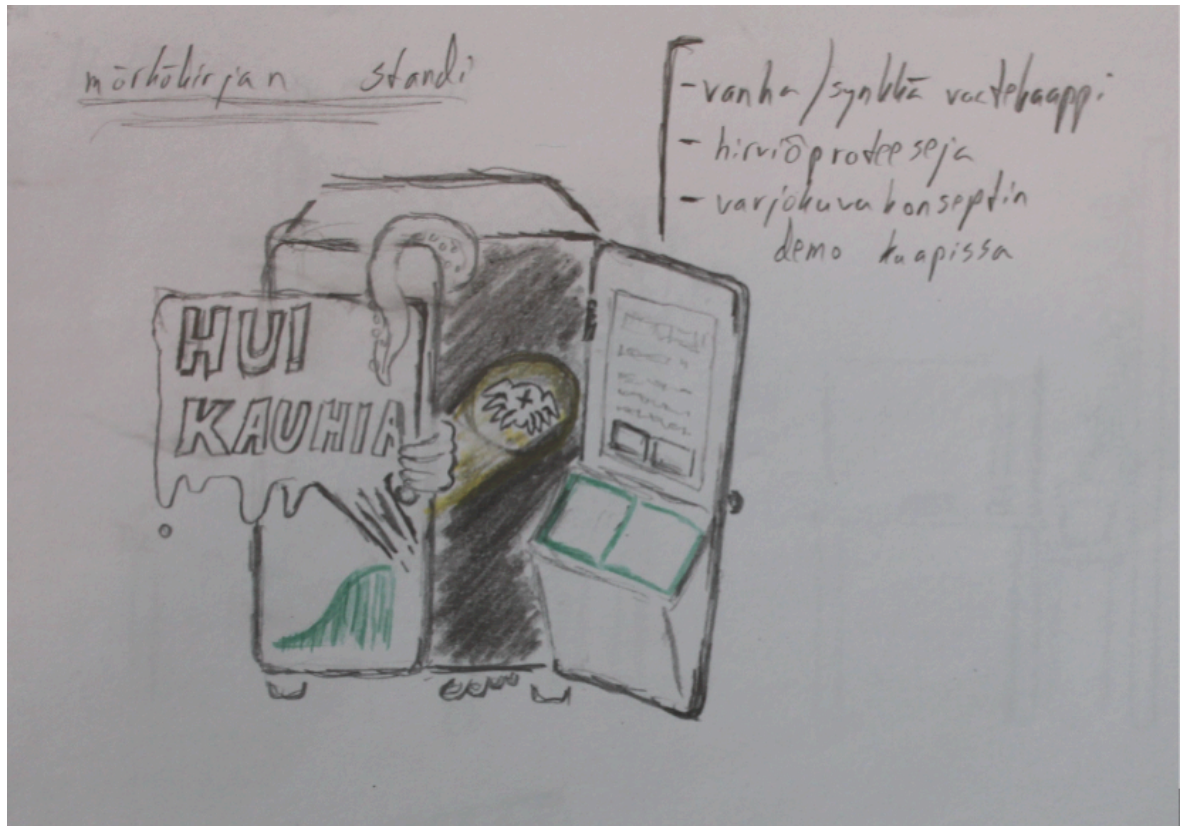 mörkökirjan standi
- vanha/synkkä vaatekaappi
- hirviöproteeseja
- varjokuvakonseptin
demo kaapissa
HUI
KAUHIA